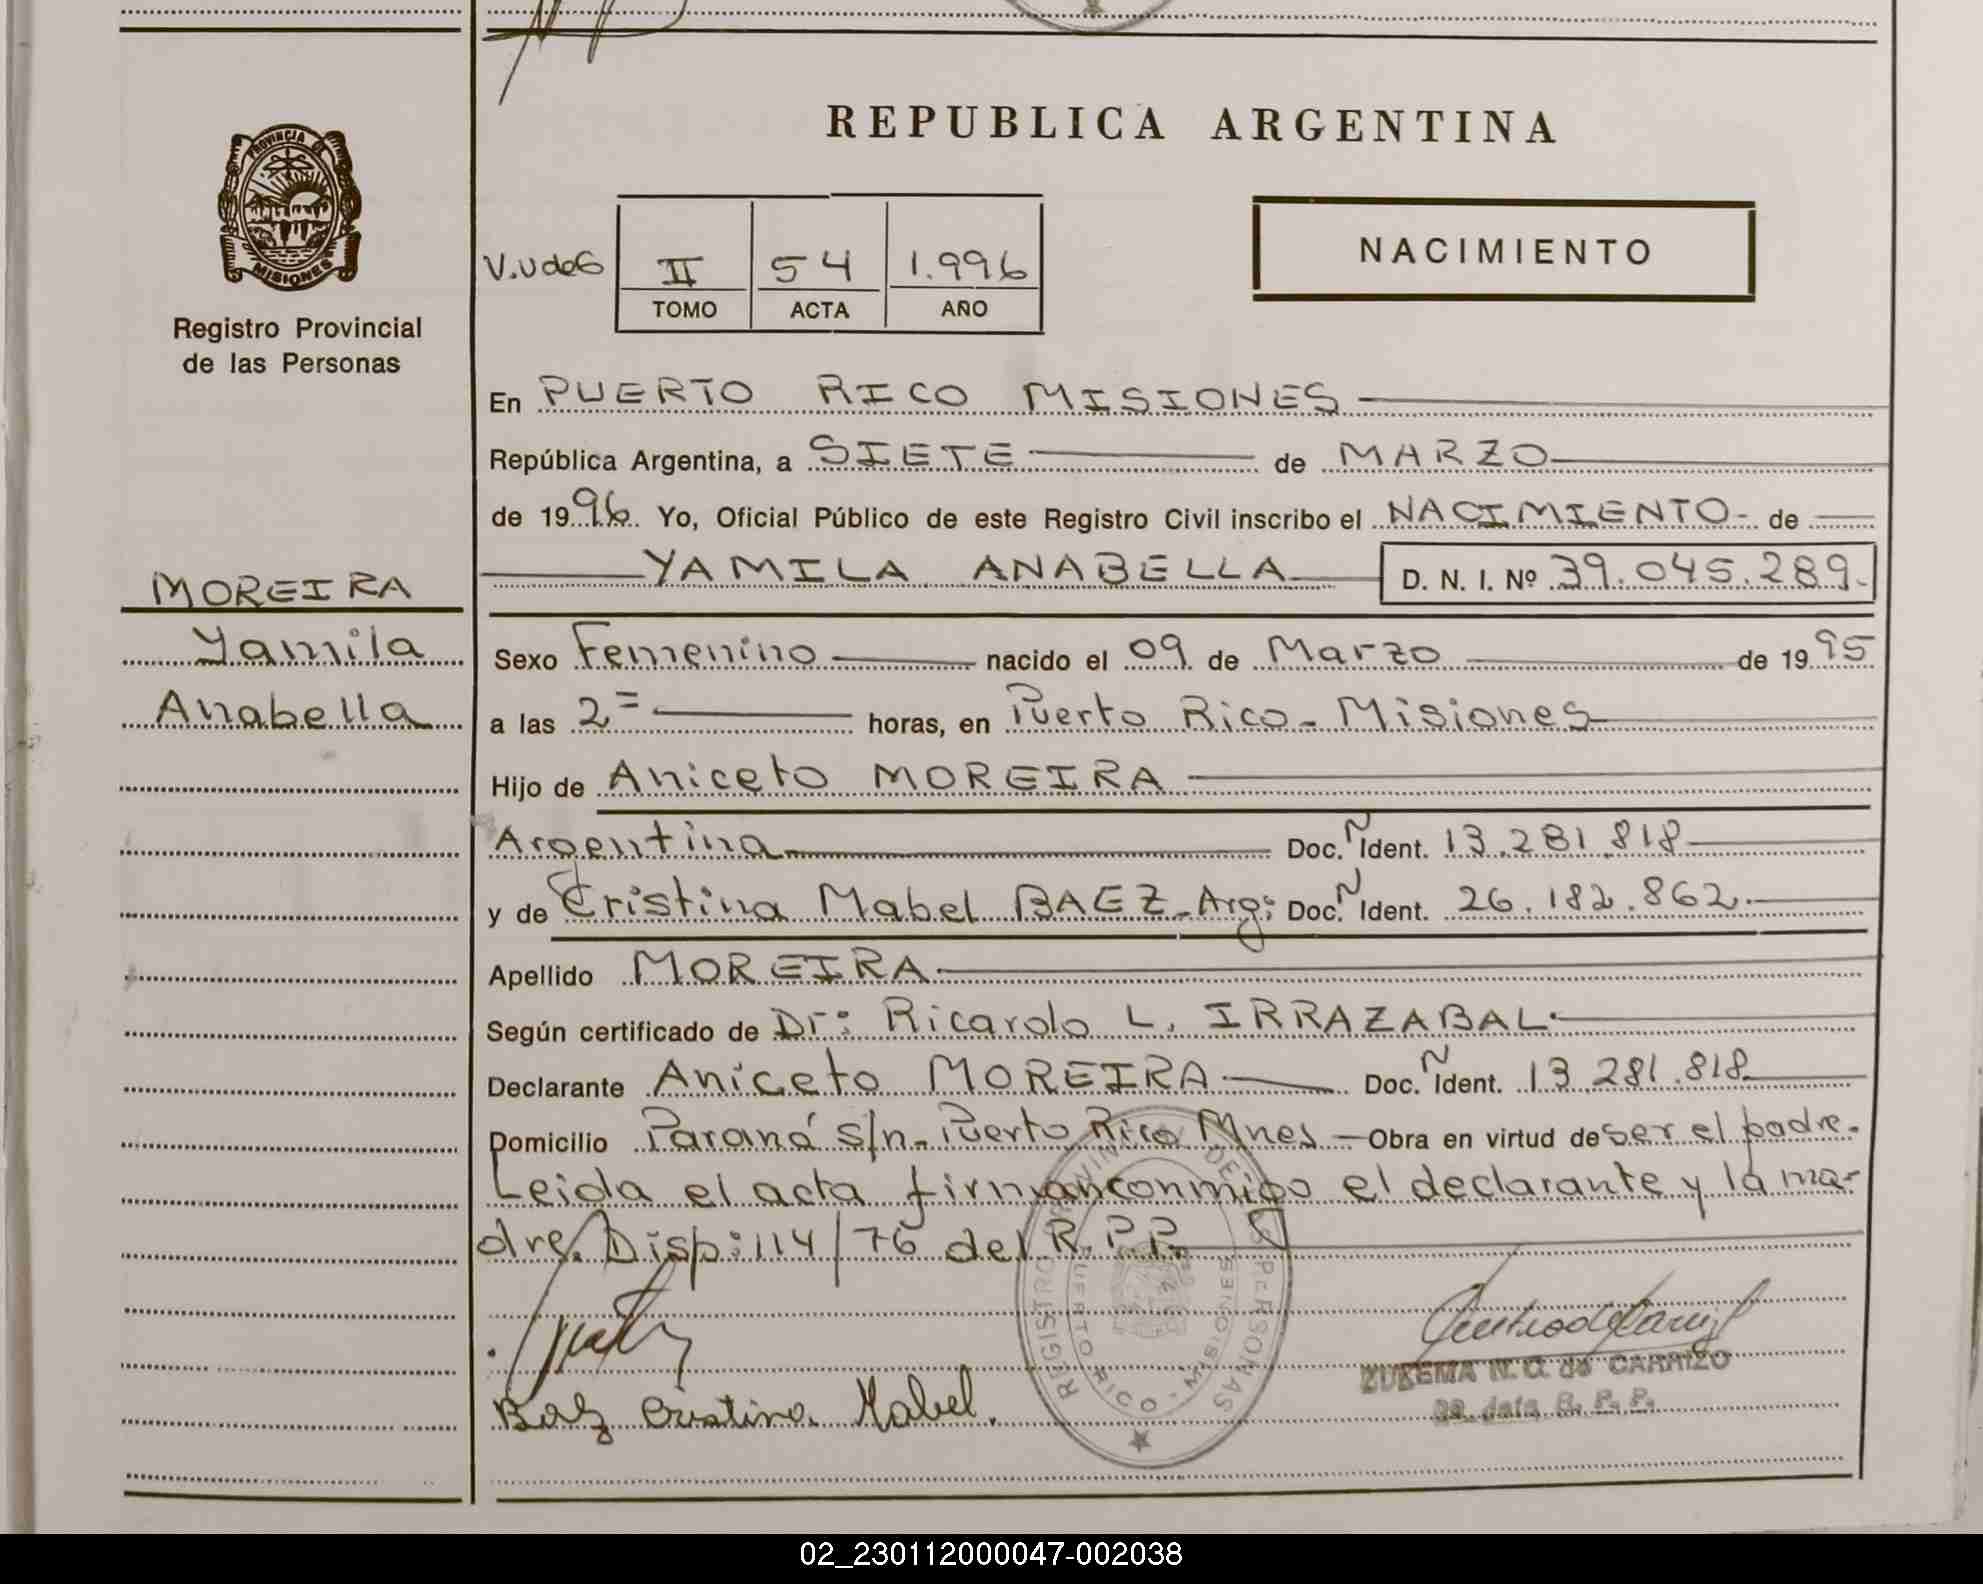 REPUBLICA ARGENTINA
PROVINCIA DE
MISIONES
Registro Provincial
de las Personas
NACIMIENTO
V.UdeG II 54 1.996
TOMO ACTA AÑO
En PUERTO RICO MISIONES
República Argentina, a SIETE de MARZO
de 1996. Yo, Oficial Público de este Registro Civil inscribo el NACIMIENTO de
YAMILA ANABELLA D. N. I. Nº 39.045.289.
MOREIRA
Yamila
Anabella
Sexo Femenino nacido el 09 de Marzo de 1995
a las 2= horas, en Puerto Rico - Misiones
Hijo de Aniceto MOREIRA
Argentina Doc. Ñ Ident. 13.281.818
y de Cristina Mabel BAEZ - Arg: Doc. Ñ Ident. 26.182.862.
Apellido MOREIRA
Según certificado de Dr: Ricardo L. IRRAZABAL.
Declarante Aniceto MOREIRA Doc. Ñ Ident. 13.281.818
Domicilio Paraná s/n - Puerto Rico Mnes - Obra en virtud de ser el padre.
Leida el acta firman conmigo el declarante y la ma-
dre. Disp: 114/76 del R.P.P.
REGISTRO PROVINCIAL DE LAS PERSONAS
PUERTO RICO - MISIONES
ZULEMA N. G. de CARRIZO
R. P. P.
Baez Cristina Mabel.
02_230112000047-002038